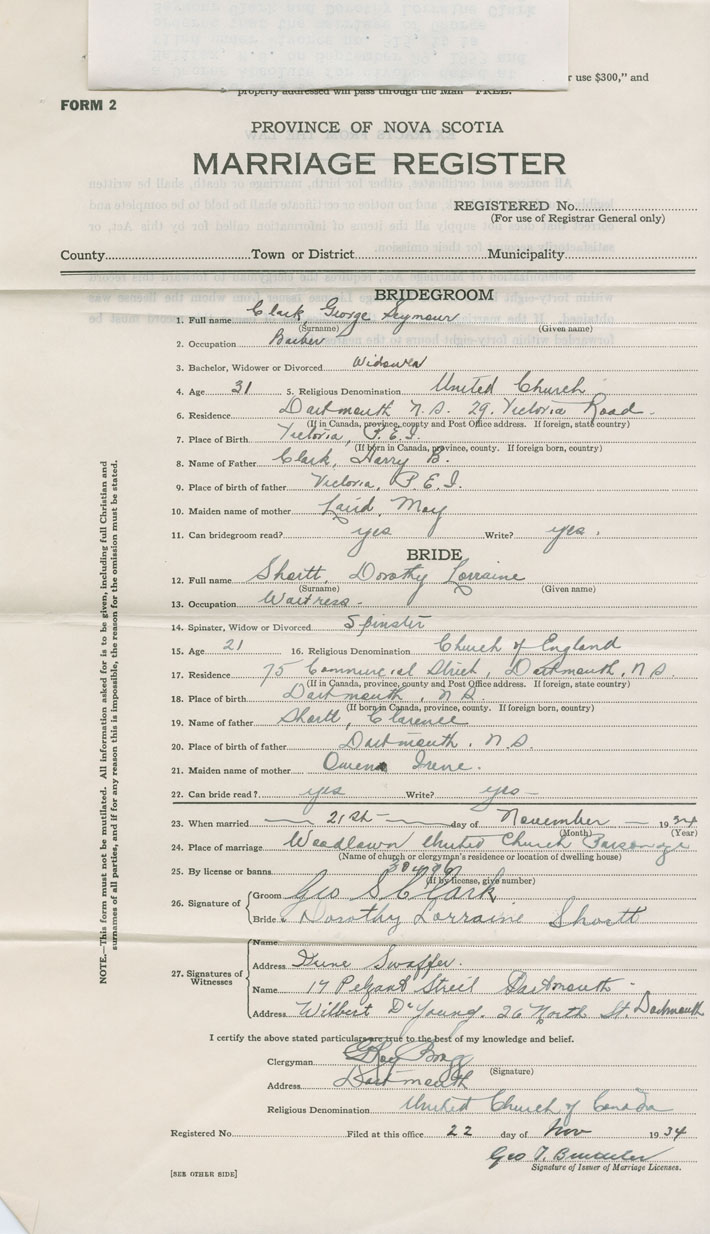 r use $300," and
properly addressed will pass through the Mail "FREE."
FORM 2
PROVINCE OF NOVA SCOTIA
MARRIAGE REGISTER
REGISTERED No.
(For use of Registrar General only)
County Town or District Municipality
BRIDEGROOM
1. Full name Clark, George Seymour
(Surname) (Given name)
2. Occupation Barber
3. Bachelor, Widower or Divorced Widower
4. Age 31 5. Religious Denomination United Church
6. Residence Dartmouth N.S. 29. Victoria Road.
(If in Canada, province, county and Post Office address. If foreign, state country)
7. Place of Birth Victoria, P.E.I.
(If born in Canada, province, county. If foreign born, country)
8. Name of Father Clark, Harry B.
9. Place of birth of father Victoria, P.E.I.
10. Maiden name of mother Laird, May
11. Can bridegroom read? yes Write? yes.
BRIDE
12. Full name Shortt, Dorothy Lorraine
(Surname) (Given name)
13. Occupation Waitress.
14. Spinster, Widow or Divorced Spinster
15. Age 21 16. Religious Denomination Church of England
17. Residence 75 Commercial Street, Dartmouth, N.S.
(If in Canada, province, county and Post Office address. If foreign, state country)
18. Place of birth Dartmouth, N.S.
(If born in Canada, province, county. If foreign born, country)
19. Name of father Shortt, Clarence
20. Place of birth of father Dartmouth, N.S.
21. Maiden name of mother Owens Irene.
22. Can bride read? yes Write? yes
23. When married 21st day of November 1934
(Month) (Year)
24. Place of marriage Woodlawn United Church Parsonage
(Name of church or clergyman's residence or location of dwelling house)
25. By license or banns
(If by license, give number)
26. Signature of Groom Geo S Clark
Bride Dorothy Lorraine Shortt
27. Signatures of Witnesses
Name
Address June Swaffer.
Name 17 Street Dartmouth
Address Wilbert DeYoung. 26 North St. Dartmouth
I certify the above stated particulars are true to the best of my knowledge and belief.
Clergyman Bragg
(Signature)
Address Dartmouth
Religious Denomination United Church of Canada
Registered No. Filed at this office 22 day of Nov 1934
Geo T.
Signature of Issuer of Marriage Licenses.
[SEE OTHER SIDE]
NOTE.—This form must not be mutilated. All information asked for is to be given, including full Christian and
surnames of all parties, and if for any reason this is impossible, the reason for the omission must be stated.